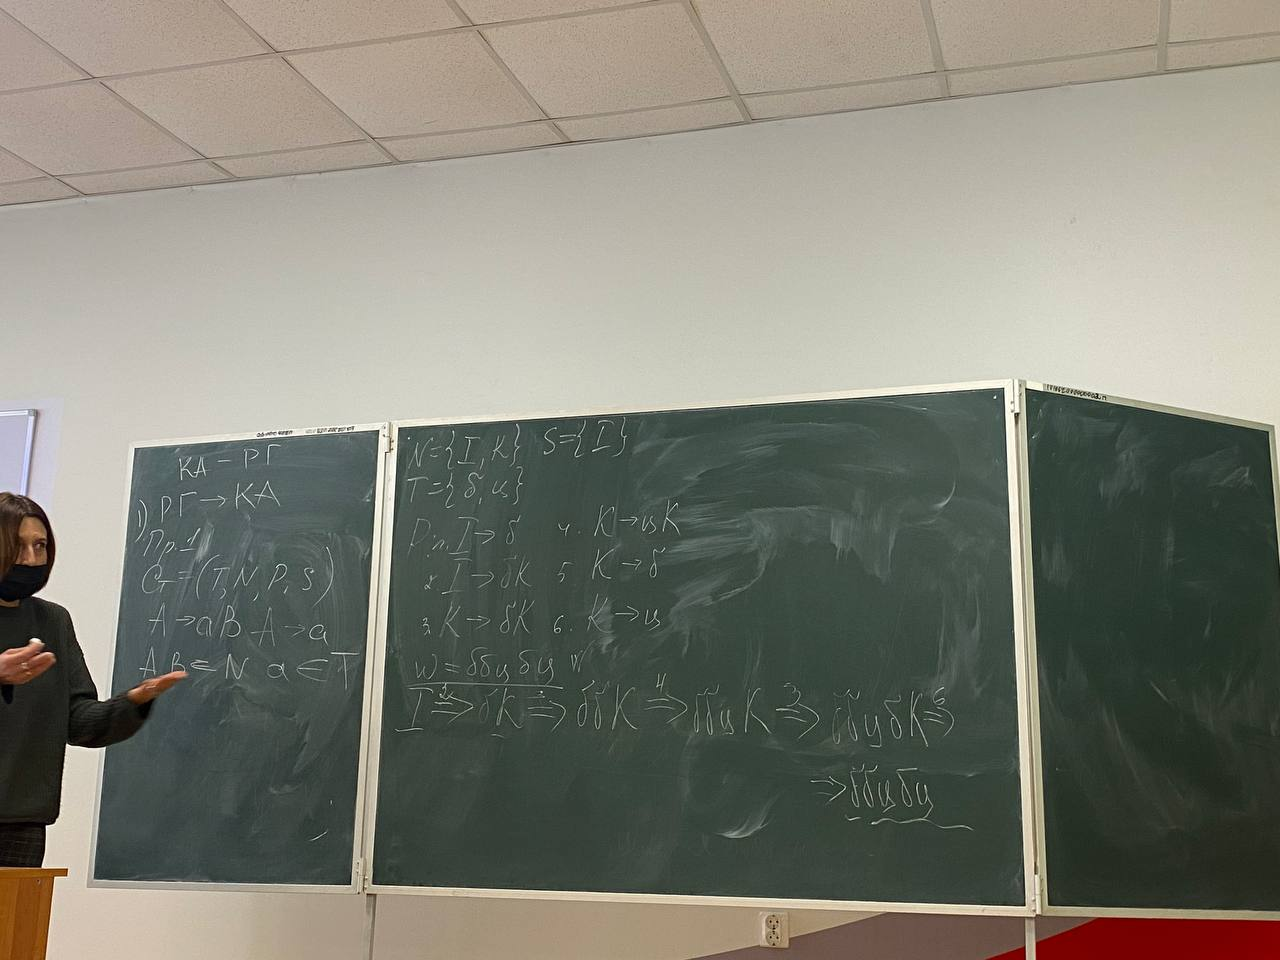 КА – РГ
1) РГ → КА
Пр. 1
G = (T, N, P, S)
A → aB A → a
A, B ∈ N a ∈ T
N = {I, K} S = {I}
T = {б, ц}
P: 1. I → б 4. K → цK
2. I → бK 5. K → б
3. K → бK 6. K → ц
w = ббцбц
I ²⇒ бK ³⇒ ббK ⁴⇒ ббцK ³⇒ ббцбK ⁶⇒
⇒ ббцбц